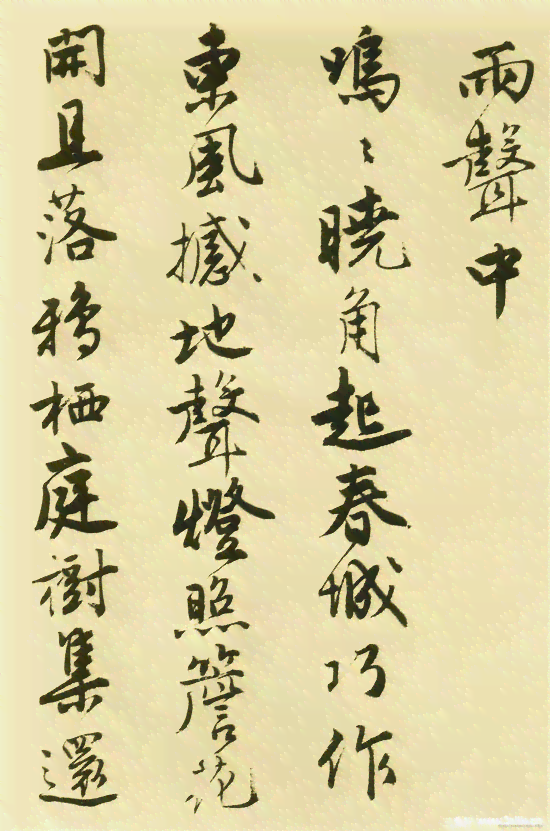 雨聲中
鳴〻曉角起春城巧作
東風撼地聲燈照簷花
開且落鴉栖庭樹集還